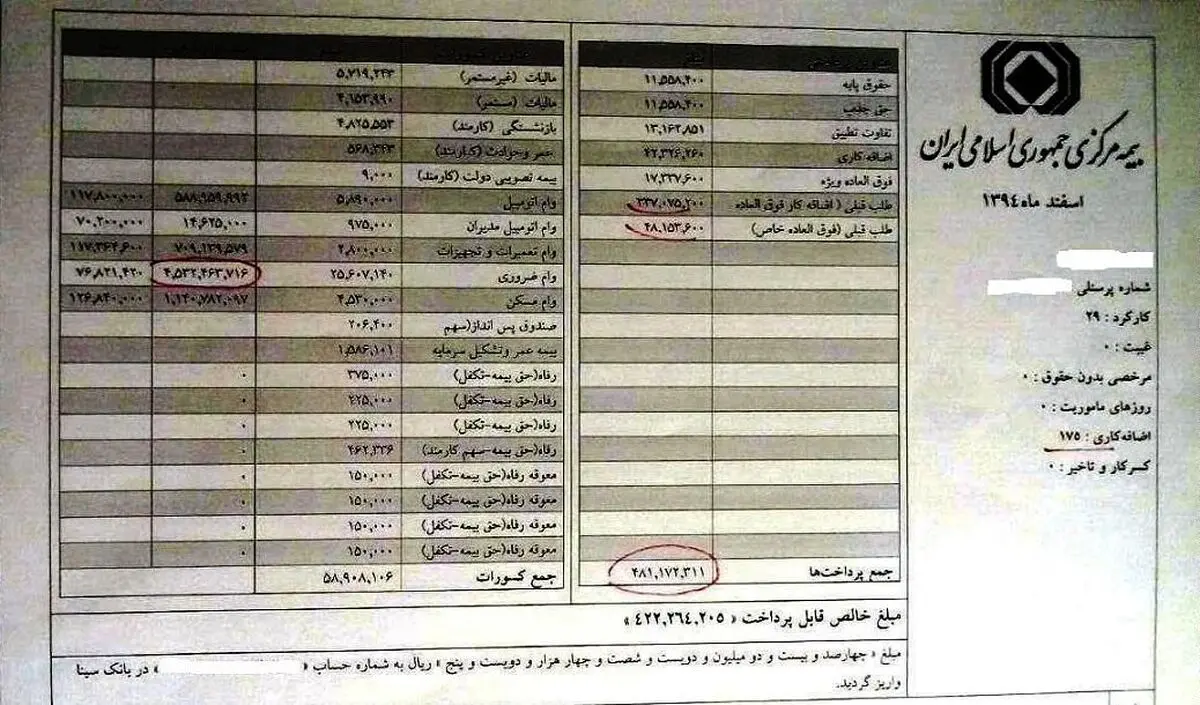 بیمه مرکزی جمهوری اسلامی ایران
اسفند ماه ۱۳۹۴
شماره پرسنلی
کارکرد : ۲۹
غیبت : ۰
مرخصی بدون حقوق : ۰
روزهای ماموریت : ۰
اضافه‌کاری : ۱۷۵
کسرکار و تاخیر : ۰
حقوق پایه ۱۱,۵۵۸,۴۰۰
حق جلب ۱۱,۵۵۸,۴۰۰
تفاوت تطبیق ۱۳,۱۶۲,۸۵۱
اضافه کاری ۴۲,۳۲۶,۲۶۰
فوق العاده ویژه ۱۷,۳۳۷,۶۰۰
طلب قبلی (اضافه کار فوق العاده ۳۳۷,۰۷۵,۲۰۰
طلب قبلی (فوق العاده خاص) ۴۸,۱۵۳,۶۰۰
جمع پرداخت‌ها ۴۸۱,۱۷۲,۳۱۱
مالیات (غیرمستمر) ۵,۷۱۹,۲۴۳
مالیات (مستمر) ۴,۱۵۳,۹۹۰
بازنشستگی (کارمند) ۴,۸۲۵,۵۵۳
عمر و حوادث (کارمند) ۵۶۸,۳۴۳
بیمه تصویبی دولت (کارمند) ۹,۰۰۰
وام اتومبیل ۵,۸۹۰,۰۰۰ ۵۸۸,۹۵۹,۹۹۲ ۱۱۷,۸۰۰,۰۰۰
وام اتومبیل مدیران ۹۷۵,۰۰۰ ۱۴,۶۲۵,۰۰۰ ۷۰,۲۰۰,۰۰۰
وام تعمیرات و تجهیزات ۲,۸۰۰,۰۰۰ ۷۰۹,۱۳۹,۵۷۹ ۱۱۷,۳۶۴,۶۰۰
وام ضروری ۲۵,۶۰۷,۱۴۰ ۴,۵۳۲,۴۶۳,۷۱۶ ۷۶,۸۲۱,۴۲۰
وام مسکن ۴,۵۳۰,۰۰۰ ۱,۱۴۰,۷۸۲,۰۹۷ ۱۲۶,۸۴۰,۰۰۰
صندوق پس انداز(سهم ۲۰۶,۴۰۰
بیمه عمر و تشکیل سرمایه ۱,۵۸۶,۱۰۱
رفاه(حق بیمه-تکفل) ۳۷۵,۰۰۰ ۰
رفاه(حق بیمه-تکفل) ۲۲۵,۰۰۰ ۰
رفاه(حق بیمه-تکفل) ۲۲۵,۰۰۰ ۰
رفاه(حق بیمه-سهم کارمند) ۴۶۲,۳۳۶ ۰
معوقه رفاه(حق بیمه-تکفل) ۱۵۰,۰۰۰ ۰
معوقه رفاه(حق بیمه-تکفل) ۱۵۰,۰۰۰ ۰
معوقه رفاه(حق بیمه-تکفل) ۱۵۰,۰۰۰ ۰
معوقه رفاه(حق بیمه-تکفل) ۱۵۰,۰۰۰ ۰
جمع کسورات ۵۸,۹۰۸,۱۰۶
مبلغ خالص قابل پرداخت « ۴۲۲,۲۶۴,۲۰۵ »
مبلغ « چهارصد و بیست و دو میلیون و دویست و شصت و چهار هزار و دویست و پنج » ریال به شماره حساب « » در بانک سینا
واریز گردید.